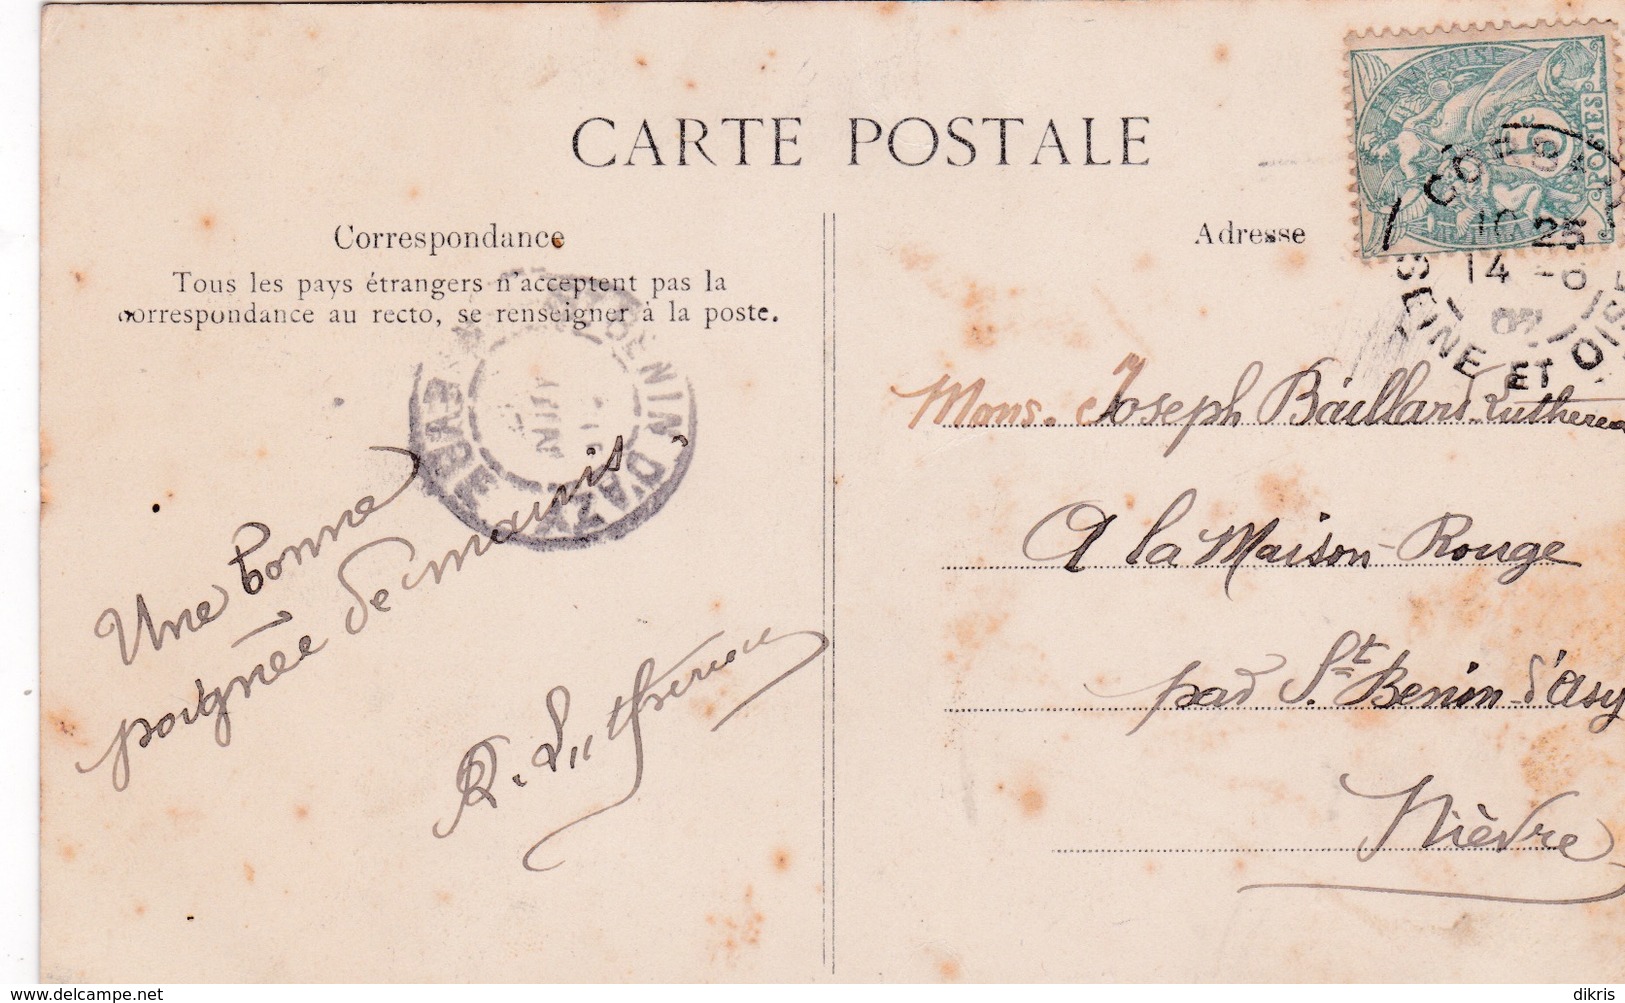 CARTE POSTALE
Correspondance
Tous les pays étrangers n'acceptent pas la
correspondance au recto, se renseigner à la poste.
Adresse
FRANÇAISE
POSTES
5c
10 25
14 -6
07
SEINE ET OISE
BENIN D'AZY
Une bonne
poignée de mains
Mons. Joseph Baillard-Luthereau
A la Maison-Rouge
par St. Benin-d'Azy
Nièvre
delcampe.net
dikris